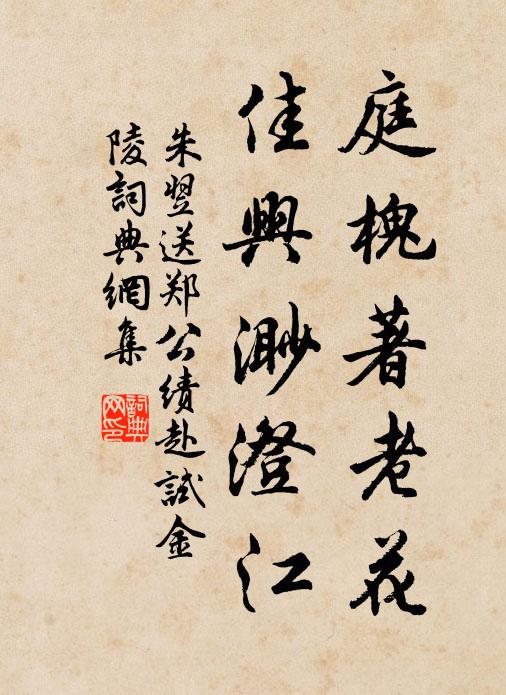 庭槐著老花
佳興渺澄江
朱翌送郑公绩赴試金
陵詞典網集
詞典
网印